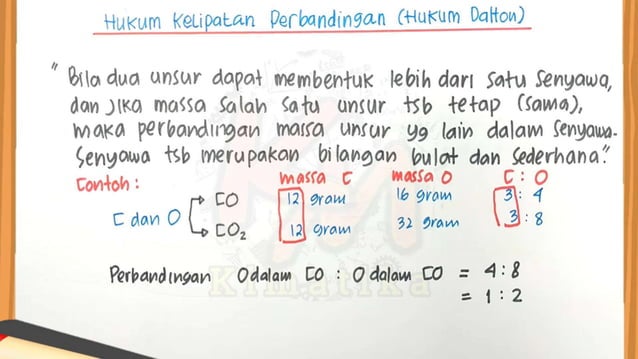 Hukum Kelipatan Perbandingan (Hukum Dalton)
"Bila dua unsur dapat membentuk lebih dari satu senyawa,
dan jika massa salah satu unsur tsb tetap (sama),
maka perbandingan massa unsur yg lain dalam senyawa-
senyawa tsb merupakan bilangan bulat dan sederhana."
Contoh : massa C massa O C : O
C dan O CO 12 gram 16 gram 3 : 4
CO2 12 gram 32 gram 3 : 8
Perbandingan O dalam CO : O dalam CO = 4 : 8
= 1 : 2
Kimatika